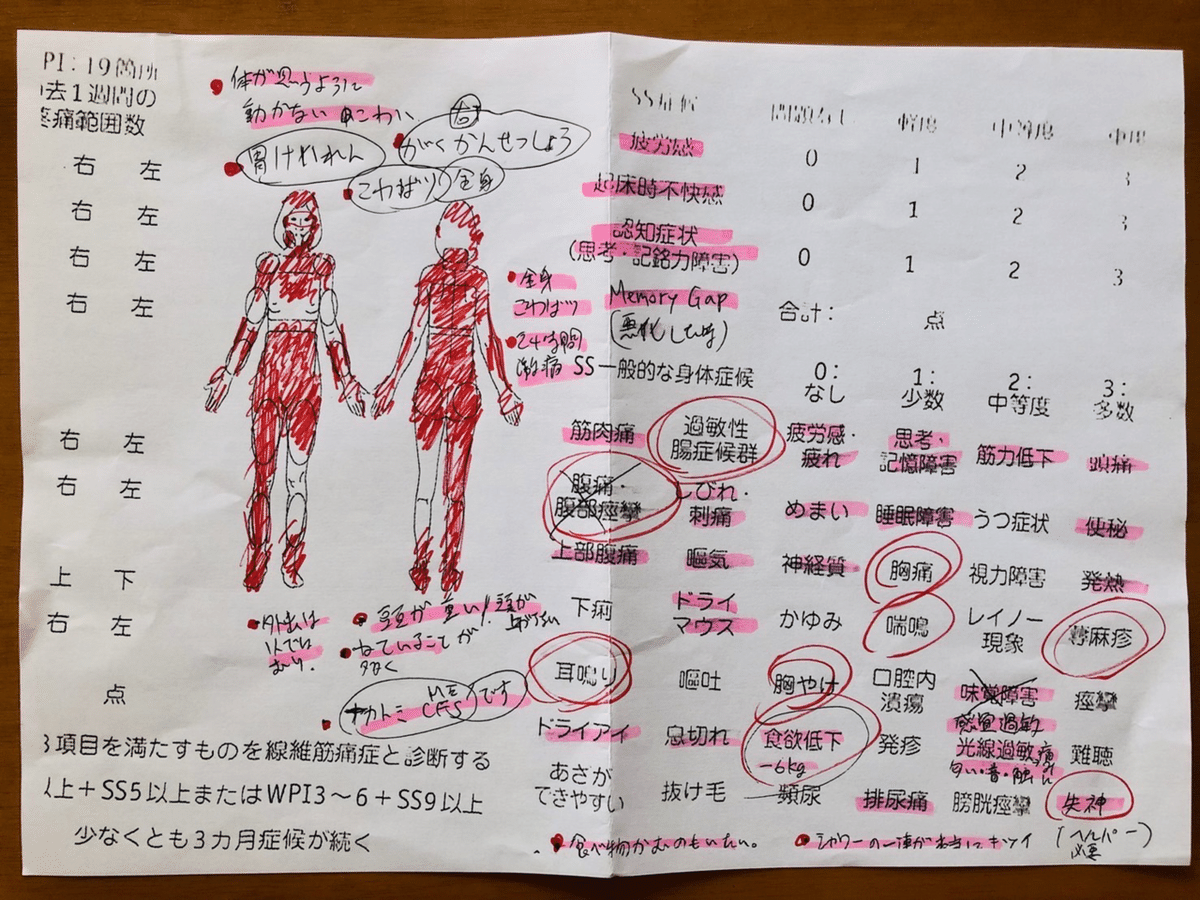 PI: 19箇所
去1週間の
疼痛範囲数
右 左
右 左
右 左
右 左
右 左
右 左
上 下
右 左
点
3項目を満たすものを線維筋痛症と診断する
以上+SS5以上またはWPI3～6+SS9以上
少なくとも3カ月症候が続く
体が思うように
動かない こわい
胃けいれん
右
がくかんせつしょう
こわばり 全身
全身
こわばり
24時間
激痛
外出は
1人では
むり.
頭が重い! 頭が
上げない
ねていることが
多く
ナカトミ ME CFS です
SS症候 問題なし 軽度 中等度 重度
疲労感 0 1 2 3
起床時不快感 0 1 2 3
認知症状
(思考・記銘力障害) 0 1 2 3
Memory Gap
(悪化した時)
合計: 点
SS一般的な身体症候 0:なし 1:少数 2:中等度 3:多数
筋肉痛 過敏性腸症候群 疲労感・疲れ 思考・記憶障害 筋力低下 頭痛
腹痛・腹部痙攣 しびれ・刺痛 めまい 睡眠障害 うつ症状 便秘
上部腹痛 嘔気 神経質 胸痛 視力障害 発熱
下痢 ドライマウス かゆみ 喘鳴 レイノー現象 蕁麻疹
耳鳴り 嘔吐 胸やけ 口腔内潰瘍 味覚障害 痙攣
ドライアイ 息切れ 食欲低下 発疹 光線過敏 難聴
-6kg
感覚過敏
匂い・音・触
あざができやすい 抜け毛 頻尿 排尿痛 膀胱痙攣 失神
食べ物かむのもいたい。
シャワーの一連が本当にキツイ
(ヘルパー)
必要